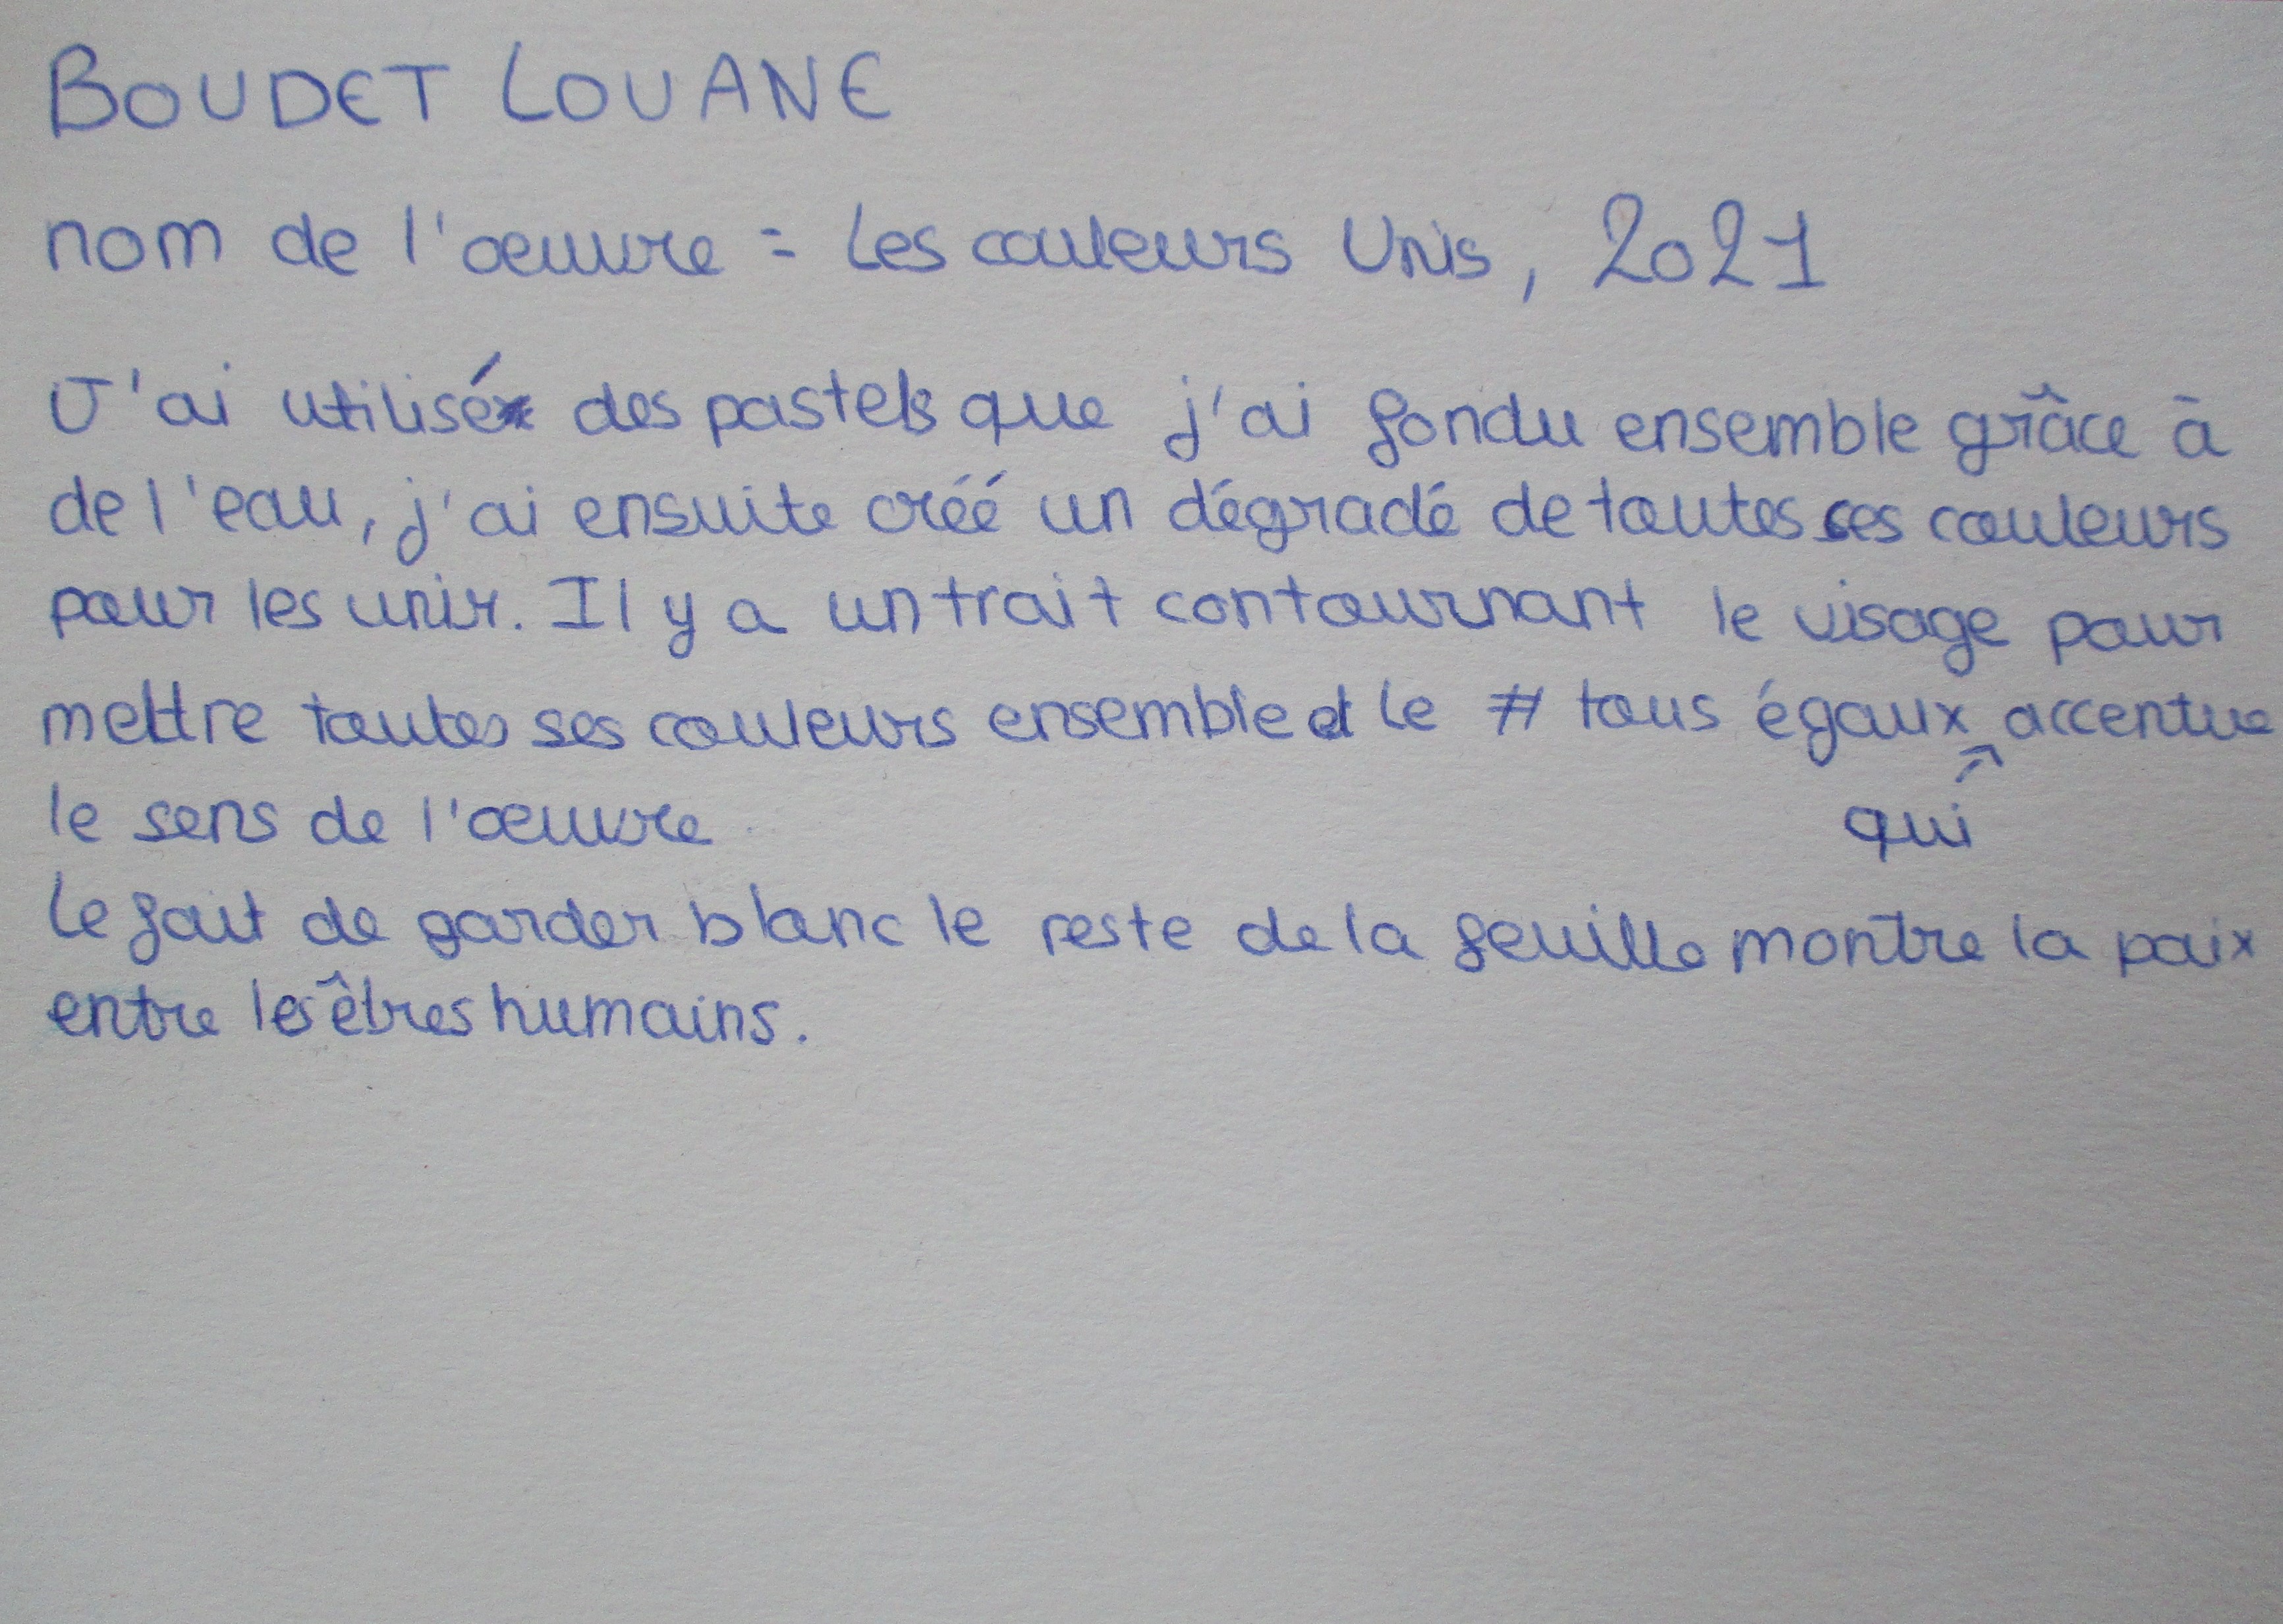 BOUDET LOUANE
nom de l'œuvre = Les couleurs Unis, 2021
J'ai utilisé des pastels que j'ai fondu ensemble grâce à
de l'eau, j'ai ensuite créé un dégradé de toutes ses couleurs
pour les unir. Il y a un trait contournant le visage pour
mettre toutes ses couleurs ensemble et le # tous égaux accentue
le sens de l'œuvre
qui
Le fait de garder blanc le reste de la feuille montre la paix
entre les êtres humains.